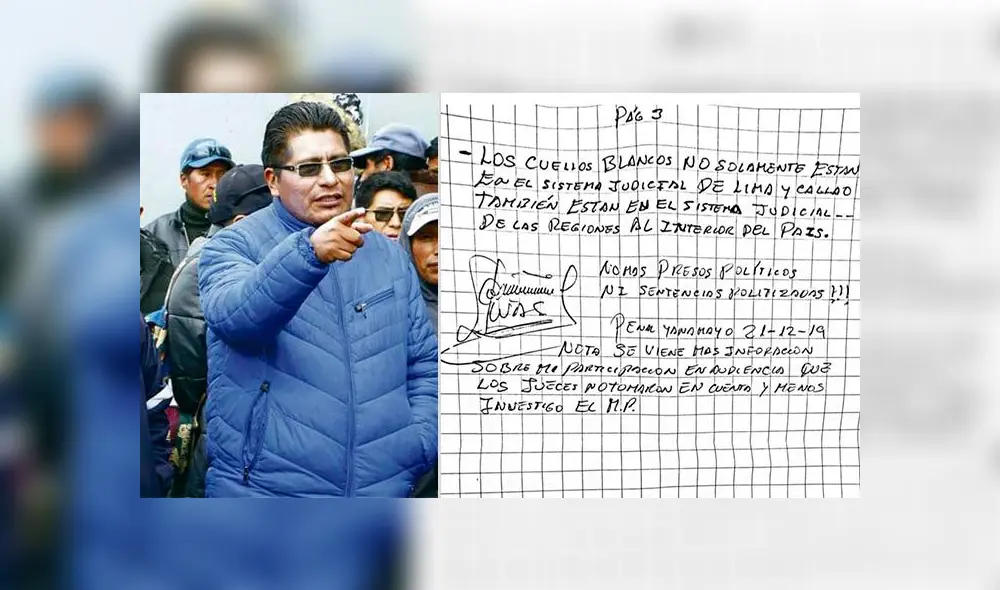 PÁG 3
- LOS CUELLOS BLANCOS NO SOLAMENTE ESTAN
EN EL SISTEMA JUDICIAL DE LIMA Y CALLAO
TAMBIÉN ESTAN EN EL SISTEMA JUDICIAL--
DE LAS REGIONES AL INTERIOR DEL PAIS.
NO MAS PRESOS POLÍTICOS
NI SENTENCIAS POLITIZADAS!!!
PENAL YANAMAYO 21-12-19
NOTA SE VIENE MAS INFORACION
SOBRE MI PARTICIPACION EN AUDIENCIA QUE
LOS JUECES NO TOMARON EN CUENTA Y MENOS
INVESTIGO EL M.P.